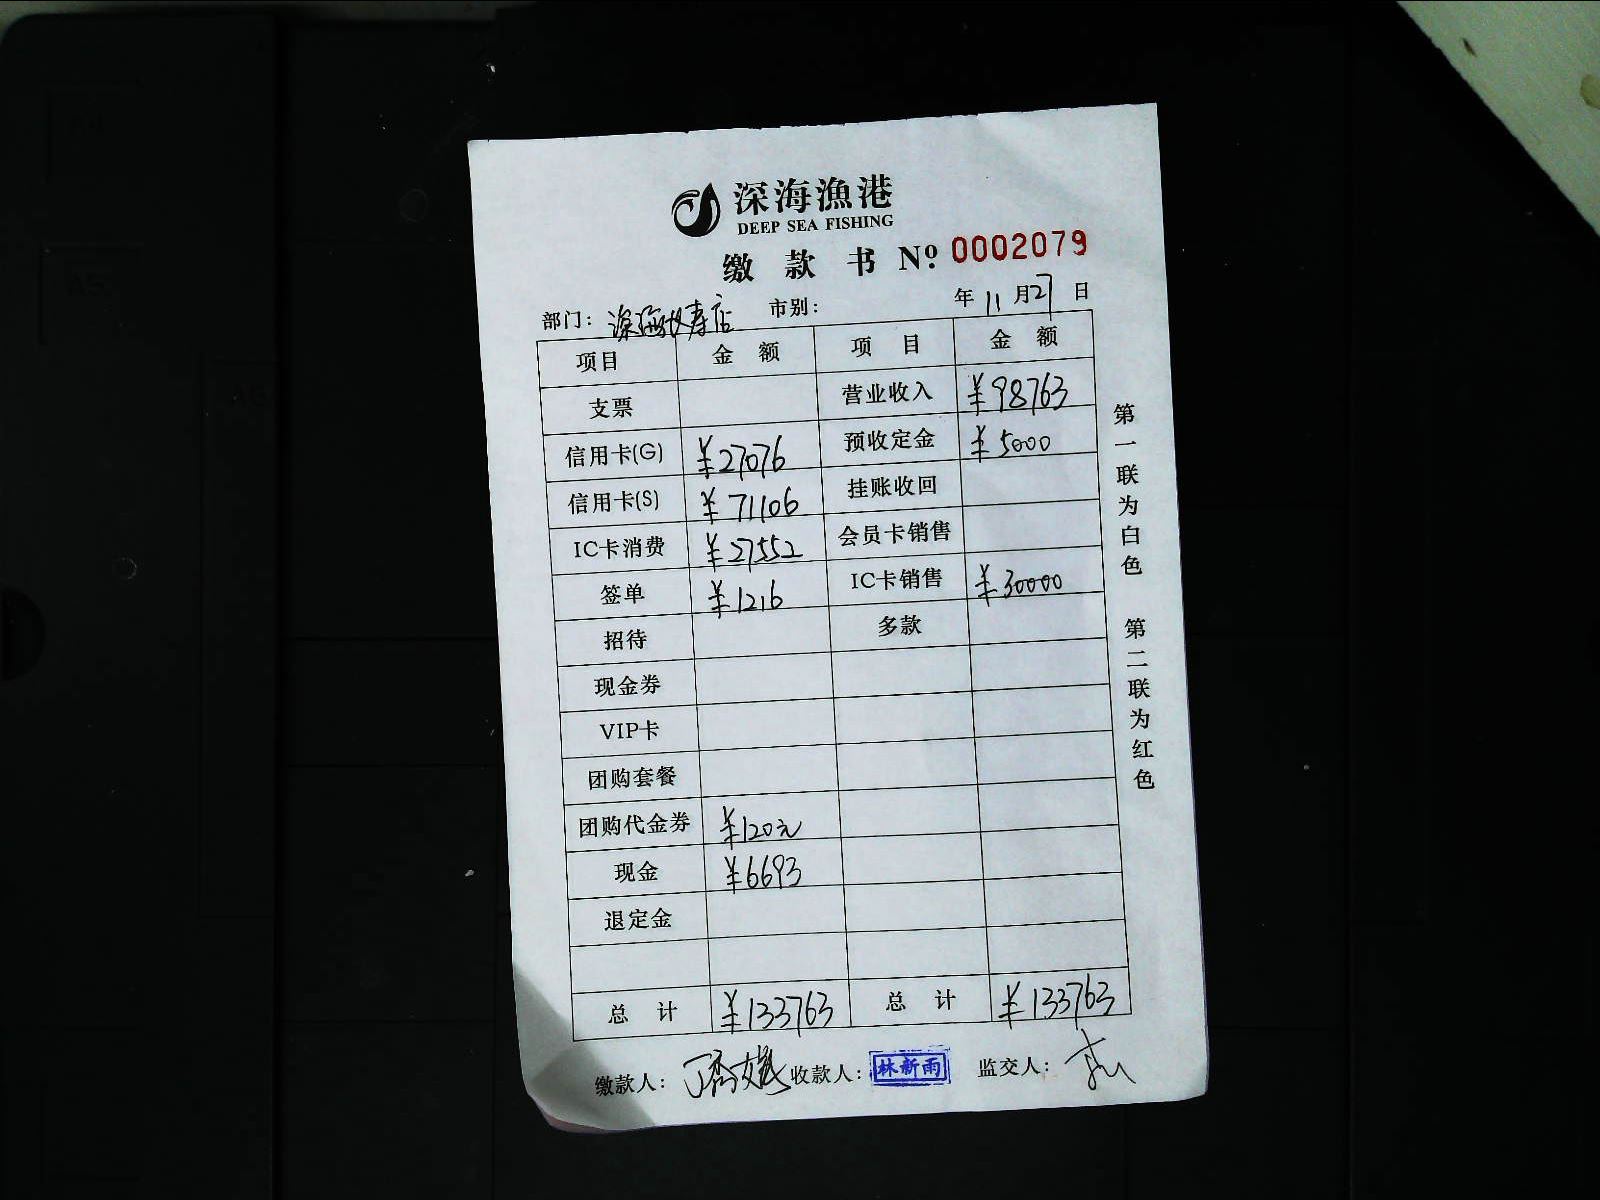 深海漁港
DEEP SEA FISHING
缴款书 Nº 0002079
部门: 深海长寿店 市别: 年 11 月 27 日
项目 金额 项目 金额
支票 营业收入 ¥98763
信用卡(G) ¥27076 预收定金 ¥5000
信用卡(S) ¥71106 挂账收回
IC卡消费 ¥27552 会员卡销售
签单 ¥1216 IC卡销售 ¥30000
招待 多款
现金券
VIP卡
团购套餐
团购代金券 ¥120元
现金 ¥6693
退定金
总计 ¥133763 总计 ¥133763
缴款人: 收款人: 林新雨 监交人:
第一联为白色 第二联为红色